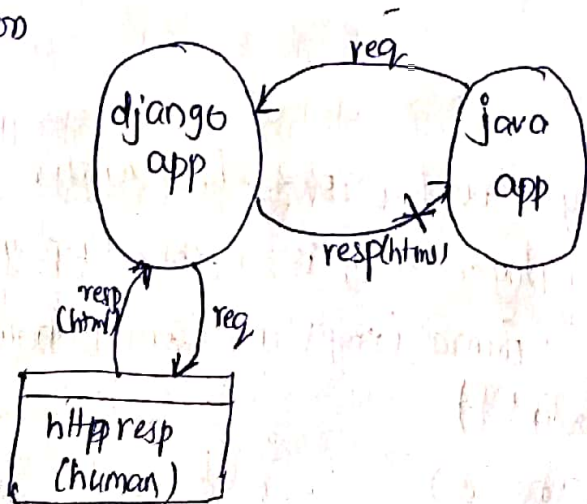 on
req
django
app
java
app
resp(html)
resp
(html)
req
http resp
(human)